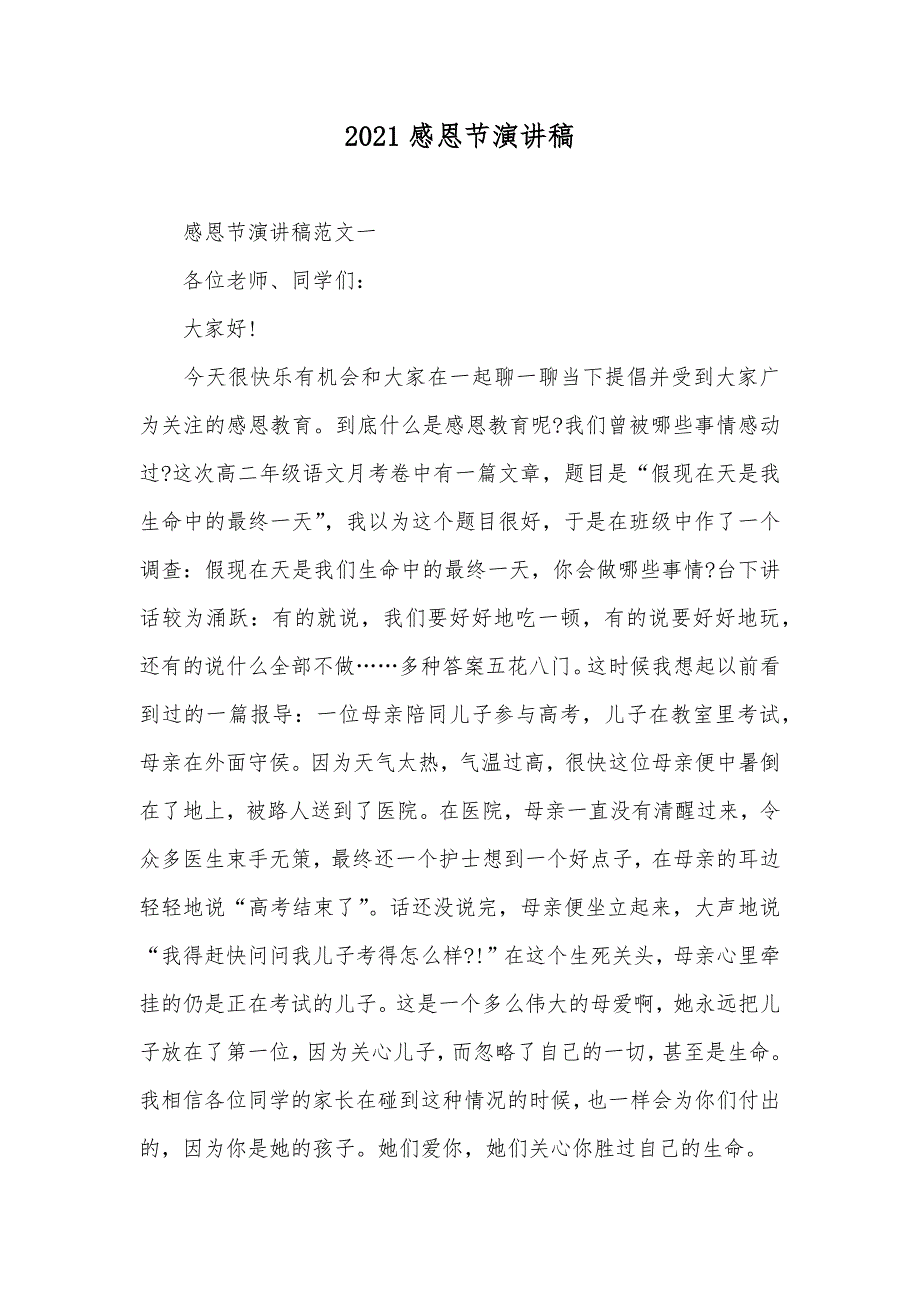 2021感恩节演讲稿
感恩节演讲稿范文一
各位老师、同学们：
大家好!
今天很快乐有机会和大家在一起聊一聊当下提倡并受到大家广
为关注的感恩教育。到底什么是感恩教育呢?我们曾被哪些事情感动
过?这次高二年级语文月考卷中有一篇文章，题目是“假现在天是我
生命中的最终一天”，我以为这个题目很好，于是在班级中作了一个
调查：假现在天是我们生命中的最终一天，你会做哪些事情?台下讲
话较为涌跃：有的就说，我们要好好地吃一顿，有的说要好好地玩，
还有的说什么全部不做……多种答案五花八门。这时候我想起以前看
到过的一篇报导：一位母亲陪同儿子参与高考，儿子在教室里考试，
母亲在外面守侯。因为天气太热，气温过高，很快这位母亲便中暑倒
在了地上，被路人送到了医院。在医院，母亲一直没有清醒过来，令
众多医生束手无策，最终还一个护士想到一个好点子，在母亲的耳边
轻轻地说“高考结束了”。话还没说完，母亲便坐立起来，大声地说
“我得赶快问问我儿子考得怎么样?!”在这个生死关头，母亲心里牵
挂的仍是正在考试的儿子。这是一个多么伟大的母爱啊，她永远把儿
子放在了第一位，因为关心儿子，而忽略了自己的一切，甚至是生命。
我相信各位同学的家长在碰到这种情况的时候，也一样会为你们付出
的，因为你是她的孩子。她们爱你，她们关心你胜过自己的生命。